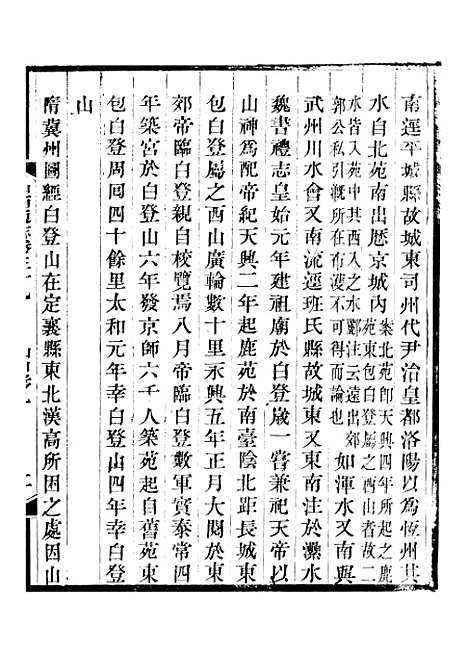 南逕平城縣故城東司州代尹治皇都洛陽以為恆州其
水自北苑南出歷京城內案北苑卽天興四年所起之鹿
苑東包白登屬之西山者故二
水皆入苑中其西入之水酈注云遠出郊
郭公私引漑所在布濩不可得而論也如渾水又南與
武州川水會又南流逕班氏縣故城東又東南注於㶟水
魏書禮志皇始元年建祖廟於白登歲一嘗兼祀天帝以
山神為配帝紀天興二年起鹿苑於南臺陰北距長城東
包白登屬之西山廣輪數十里永興五年正月大閱於東
郊帝臨白登親自校覽焉八月帝臨白登數軍實泰常四
年築宮於白登山六年發京師六千人築苑起自舊苑東
包白登周回四十餘里太和元年幸白登山四年幸白登
山
隋冀州圖經白登山在定襄縣東北漢高所困之處因山